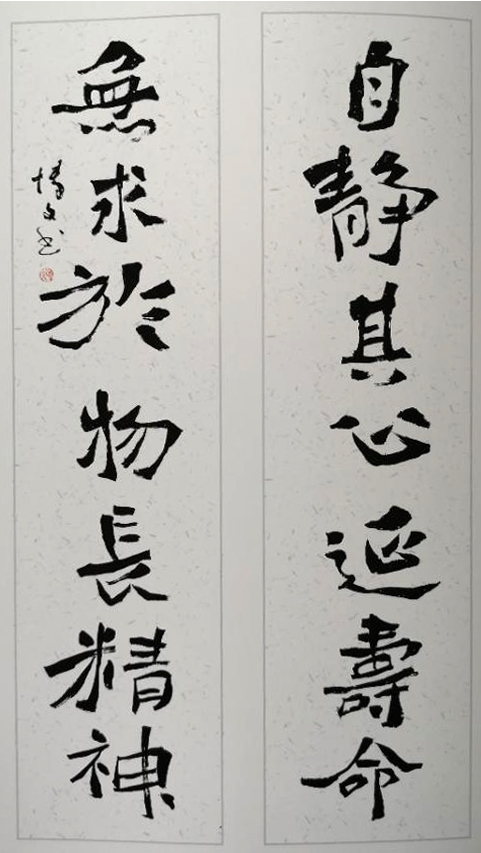 自靜其心延壽命
無求於物長精神
博文书